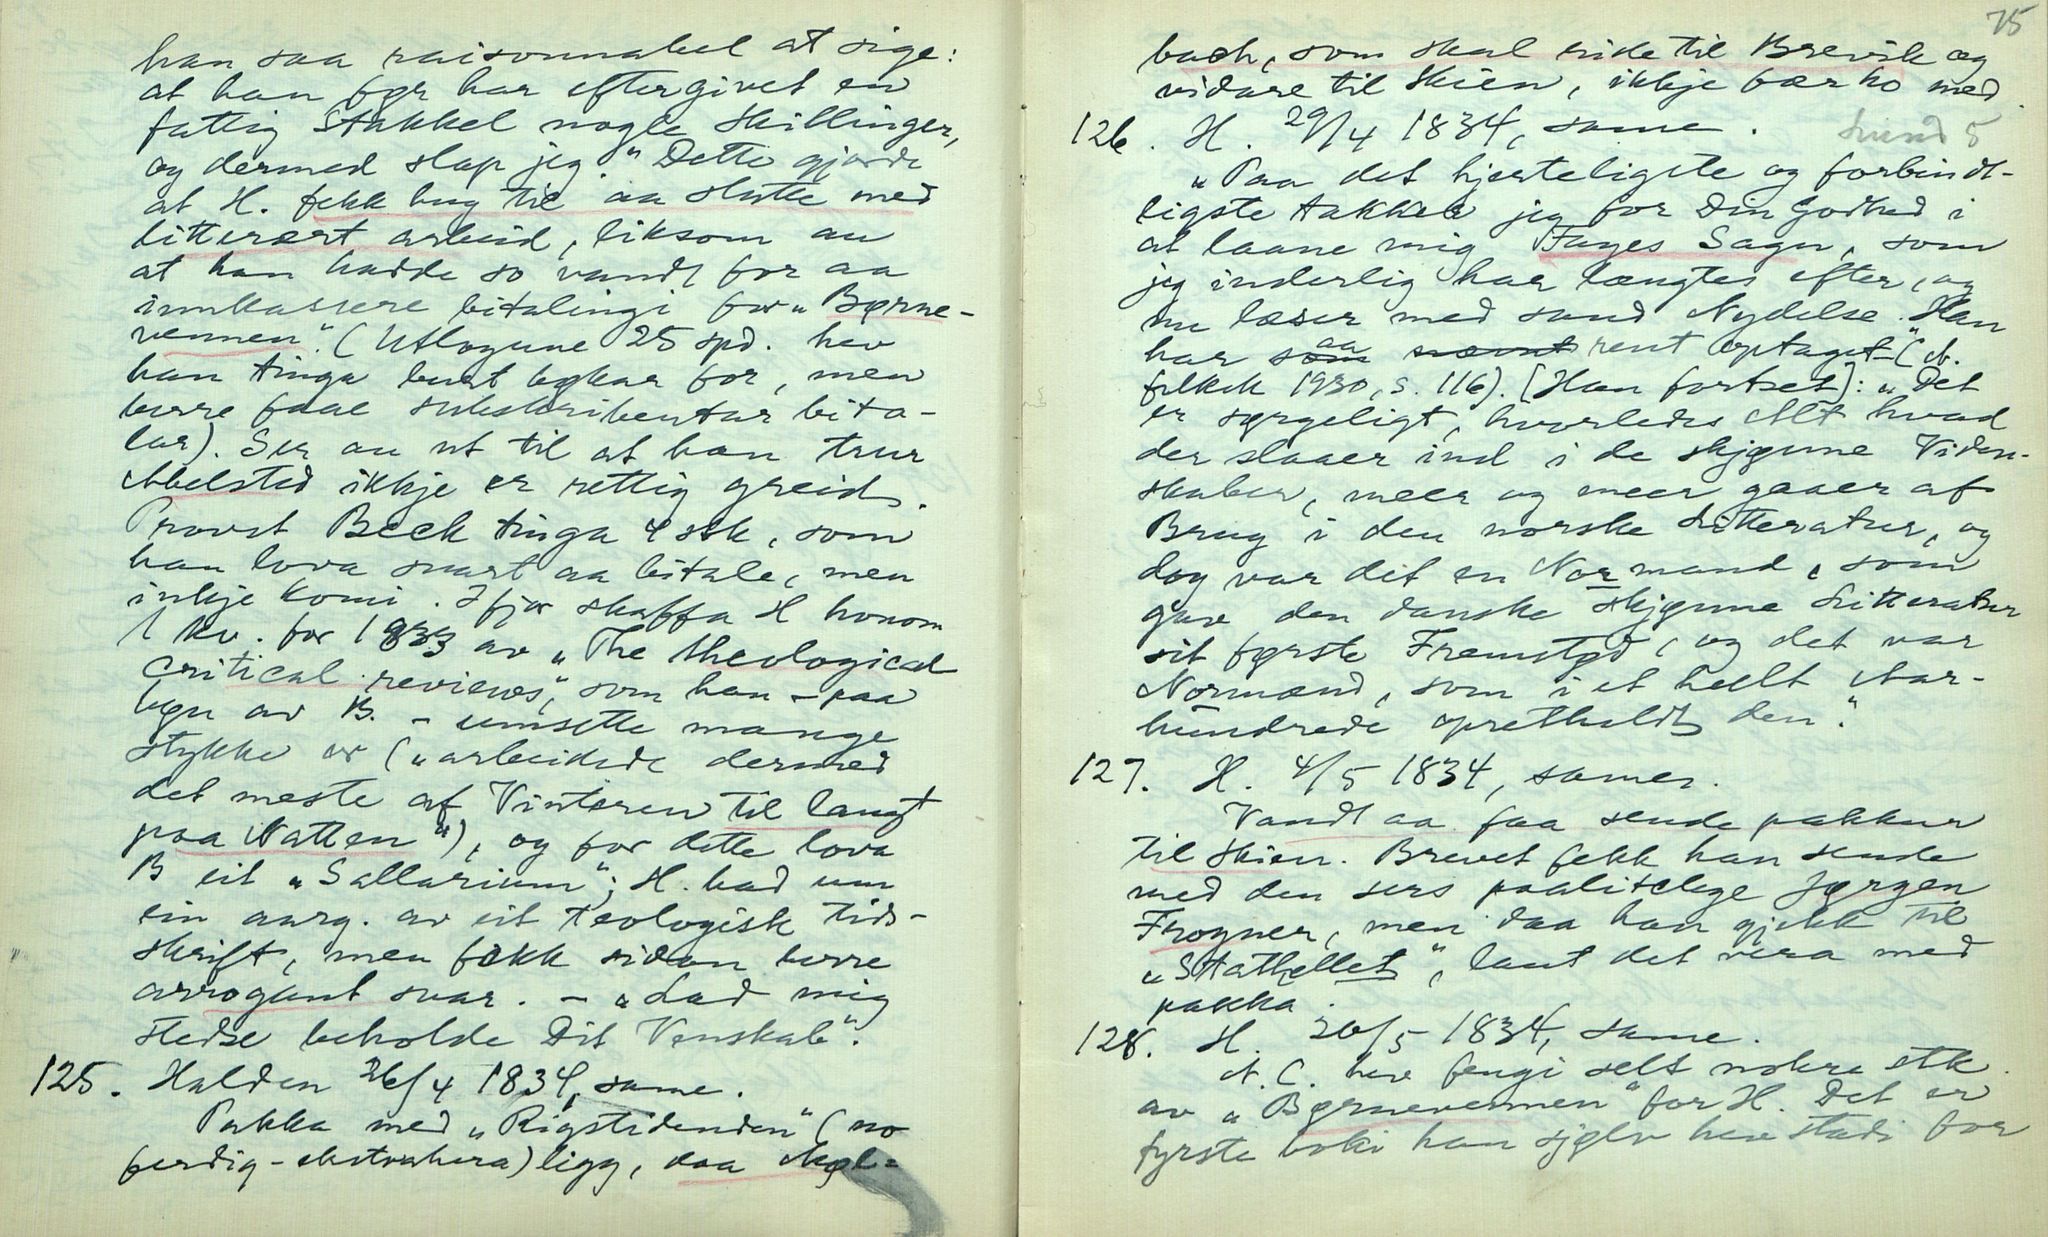 han saa raisonnabel at sige:
at han før har eftergivet en
fattig Stakkel nogle Skillinger,
og dermed slap jeg." Dette gjorde
at H. fekk hug til aa slutte med
litterært arbeid, liksom au
at han hadde so vandt for aa
innkassere betalingi for "Børne-
vennen". (Utlogune 25 spd. hev
han tinga burt bøkar for, men
berre faae subskribentar beta-
lar). Ser au ut til at han trur
Abelsted ikkje er rettig greid.
Provst Beck tinga 4 stk, som
han lova snart aa betale, men
inkje komi. Ifjor skaffa H honom
1 kv. for 1833 av "The theological
critical reviews", som han - paa
bøn av B. - umsette mange
stykke or ("arbeidede dermed
det meste af Vinteren til langt
paa Natten"), og for dette lova
B eit "Sallarium"; H. bad um
ein aarg. av eit teologisk tids-
skrift, men fekk sidan berre
arrogant svar. - "Lad mig
stedse beholde Dit Venskab".
125. Halden 26/4 1834, same.
Pakka med "Rigstidenden" (no
ferdig-ekstrahera) ligg, daa Møl-
75
bach, som skal ride til Brevik og
vidare til Skien, ikkje bær ho med.
126. H. 29/4 1834, same.
Lund 5
"Paa det hjerteligste og forbindt-
ligste takker jeg for Din Godhed i
at laane mig Fayes Sagn, som
jeg inderlig har længtes efter, og
nu læser med sand Nydelse. Han
har saa rent optaget" (N.
folkek 1930, s. 116). [Han fortset]: "Det
er sørgeligt, hvorledes Alt hvad
der slaaer ind i de skjønne Viden-
skaber, meer og meer gaaer af
Brug i den norske Litteratur, og
dog var det en Normand, som
gav den danske skjønne Litteratur
sit første Fremstød, og det var
Normænd, som i et heelt Aar-
hundrede opretholdt den".
127. H. 4/5 1834, same.
Vandt aa faa sende pakkur
til Skien. Brevet fekk han sende
med den sers paalitelege Jørgen
Frogner, men daa han gjekk til
"Stathellet", laut det vera med
pakka.
128. H. 26/5 1834, same.
A. C. hev fengi selt nokre stk
av "Børnevennen" for H. Det er
fyrste boki han sjølv hev stadi for